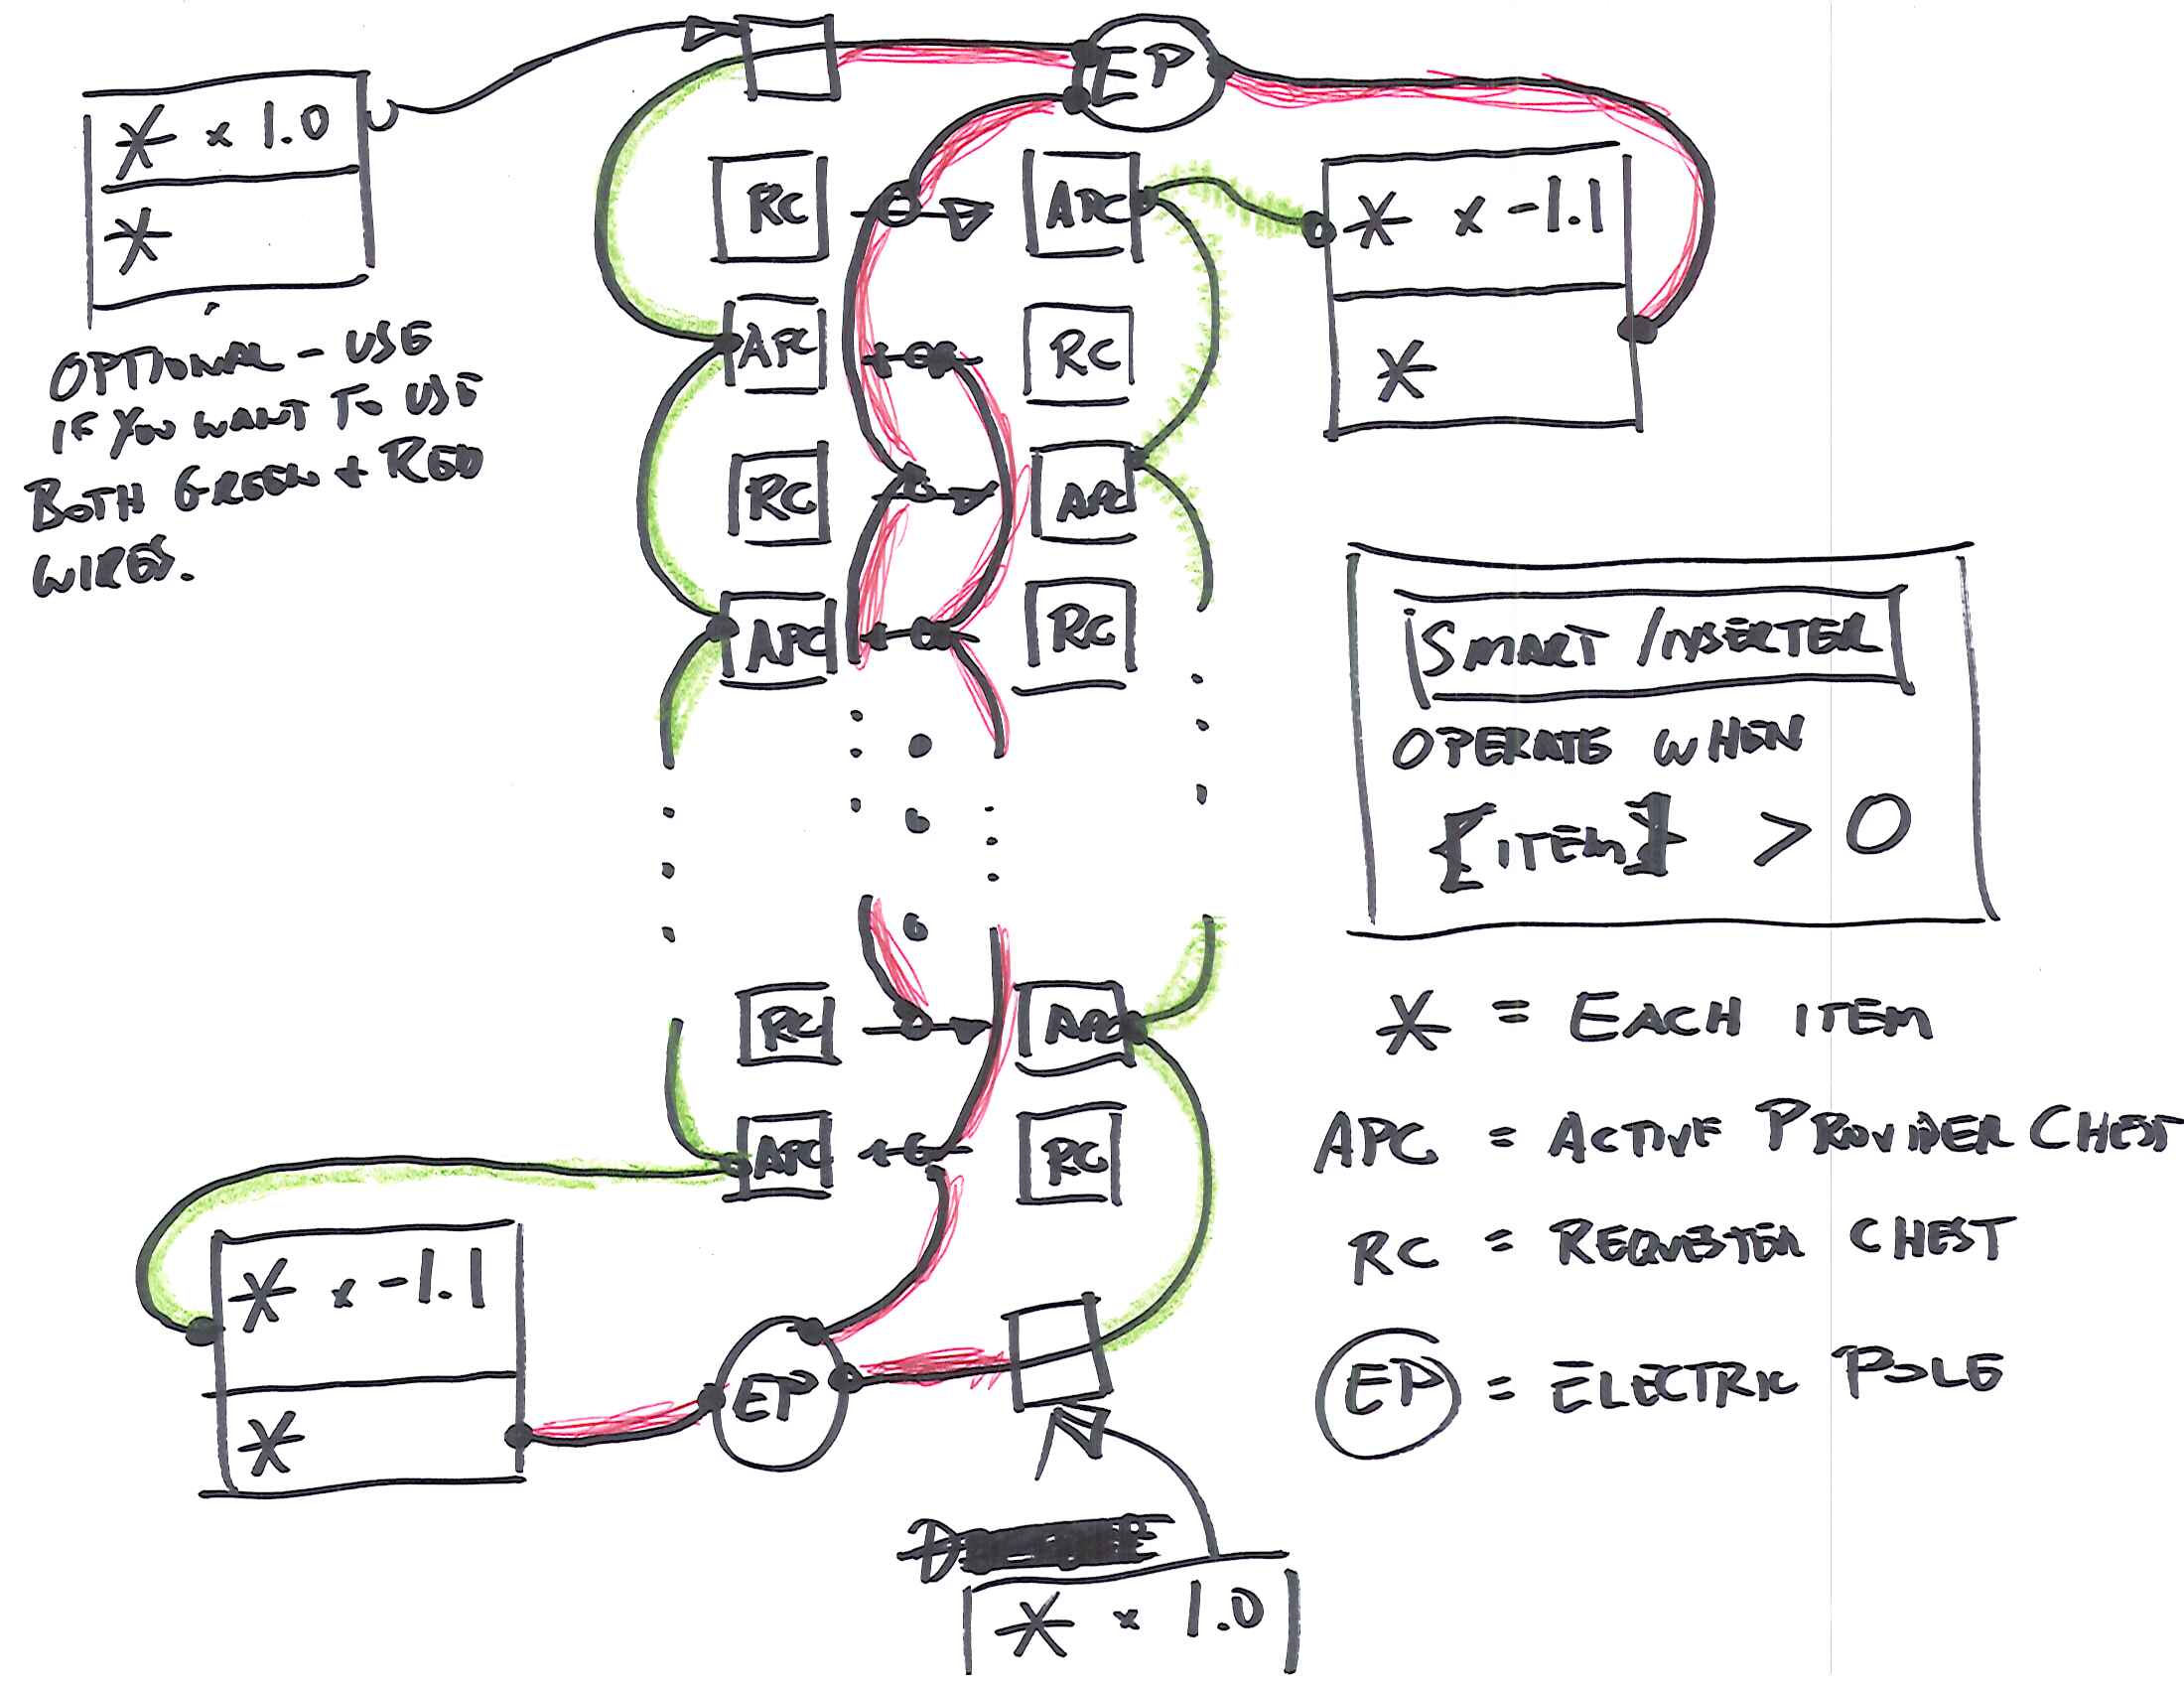 EP
* x 1.0
*
OPTIONAL - USE
IF YOU WANT TO USE
BOTH GREEN + RED
WIRES.
RC
APC
* x -1.1
*
APC
RC
RC
APC
APC
RC
SMART INSERTER
OPERATE WHEN
{ITEM} > 0
RC
APC
APC
RC
* = EACH ITEM
APC = ACTIVE PROVIDER CHEST
RC = REQUESTER CHEST
EP = ELECTRIC POLE
* x -1.1
*
EP
* x 1.0